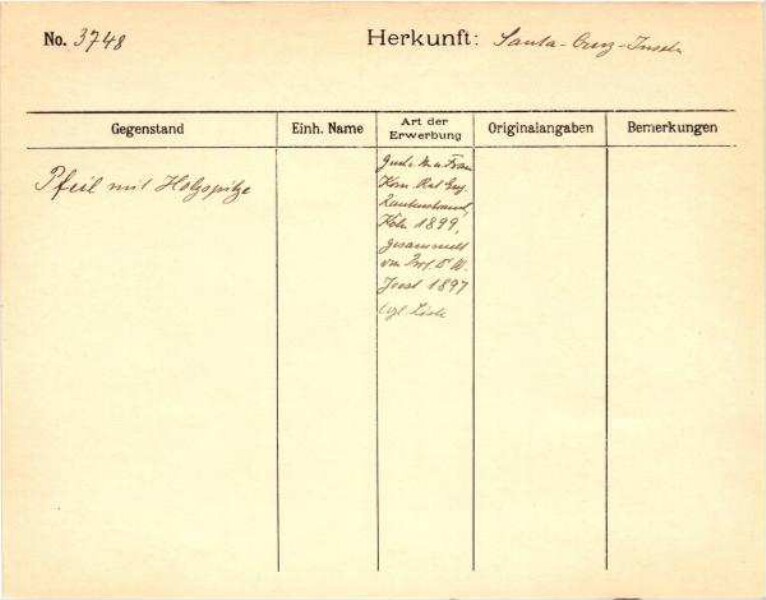 No. 3748
Herkunft: Santa-Cruz-Inseln
Gegenstand
Einh. Name
Art der
Erwerbung
Originalangaben
Bemerkungen
Pfeil mit Holzspitze
Frau
Kom. Rat Eug.
Rautenstrauch,
Köln 1899,
gesammelt
von Prof. Dr W.
Joest 1897
vgl. Liste